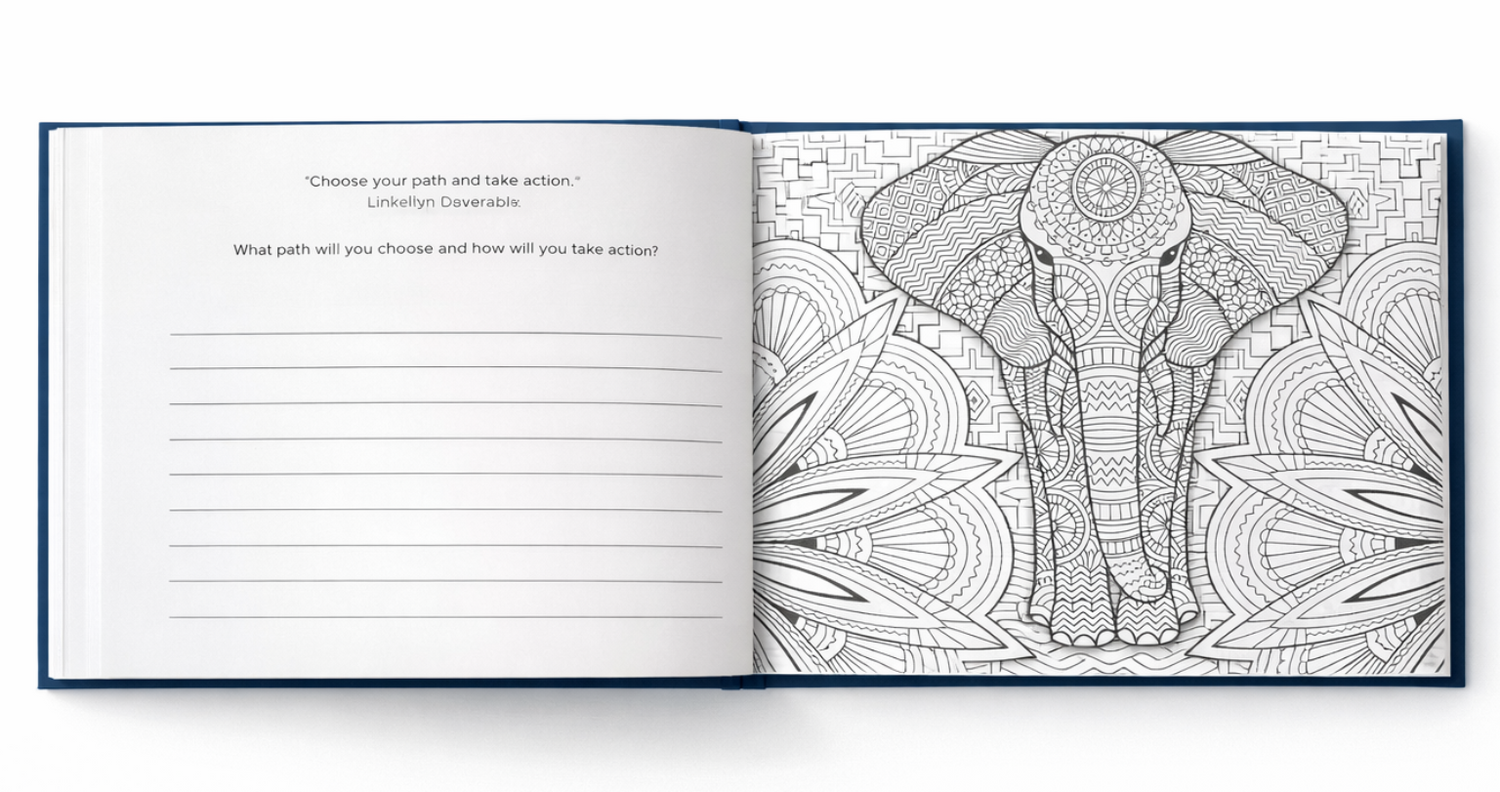 "Choose your path and take action."
Linkellyn
What path will you choose and how will you take action?